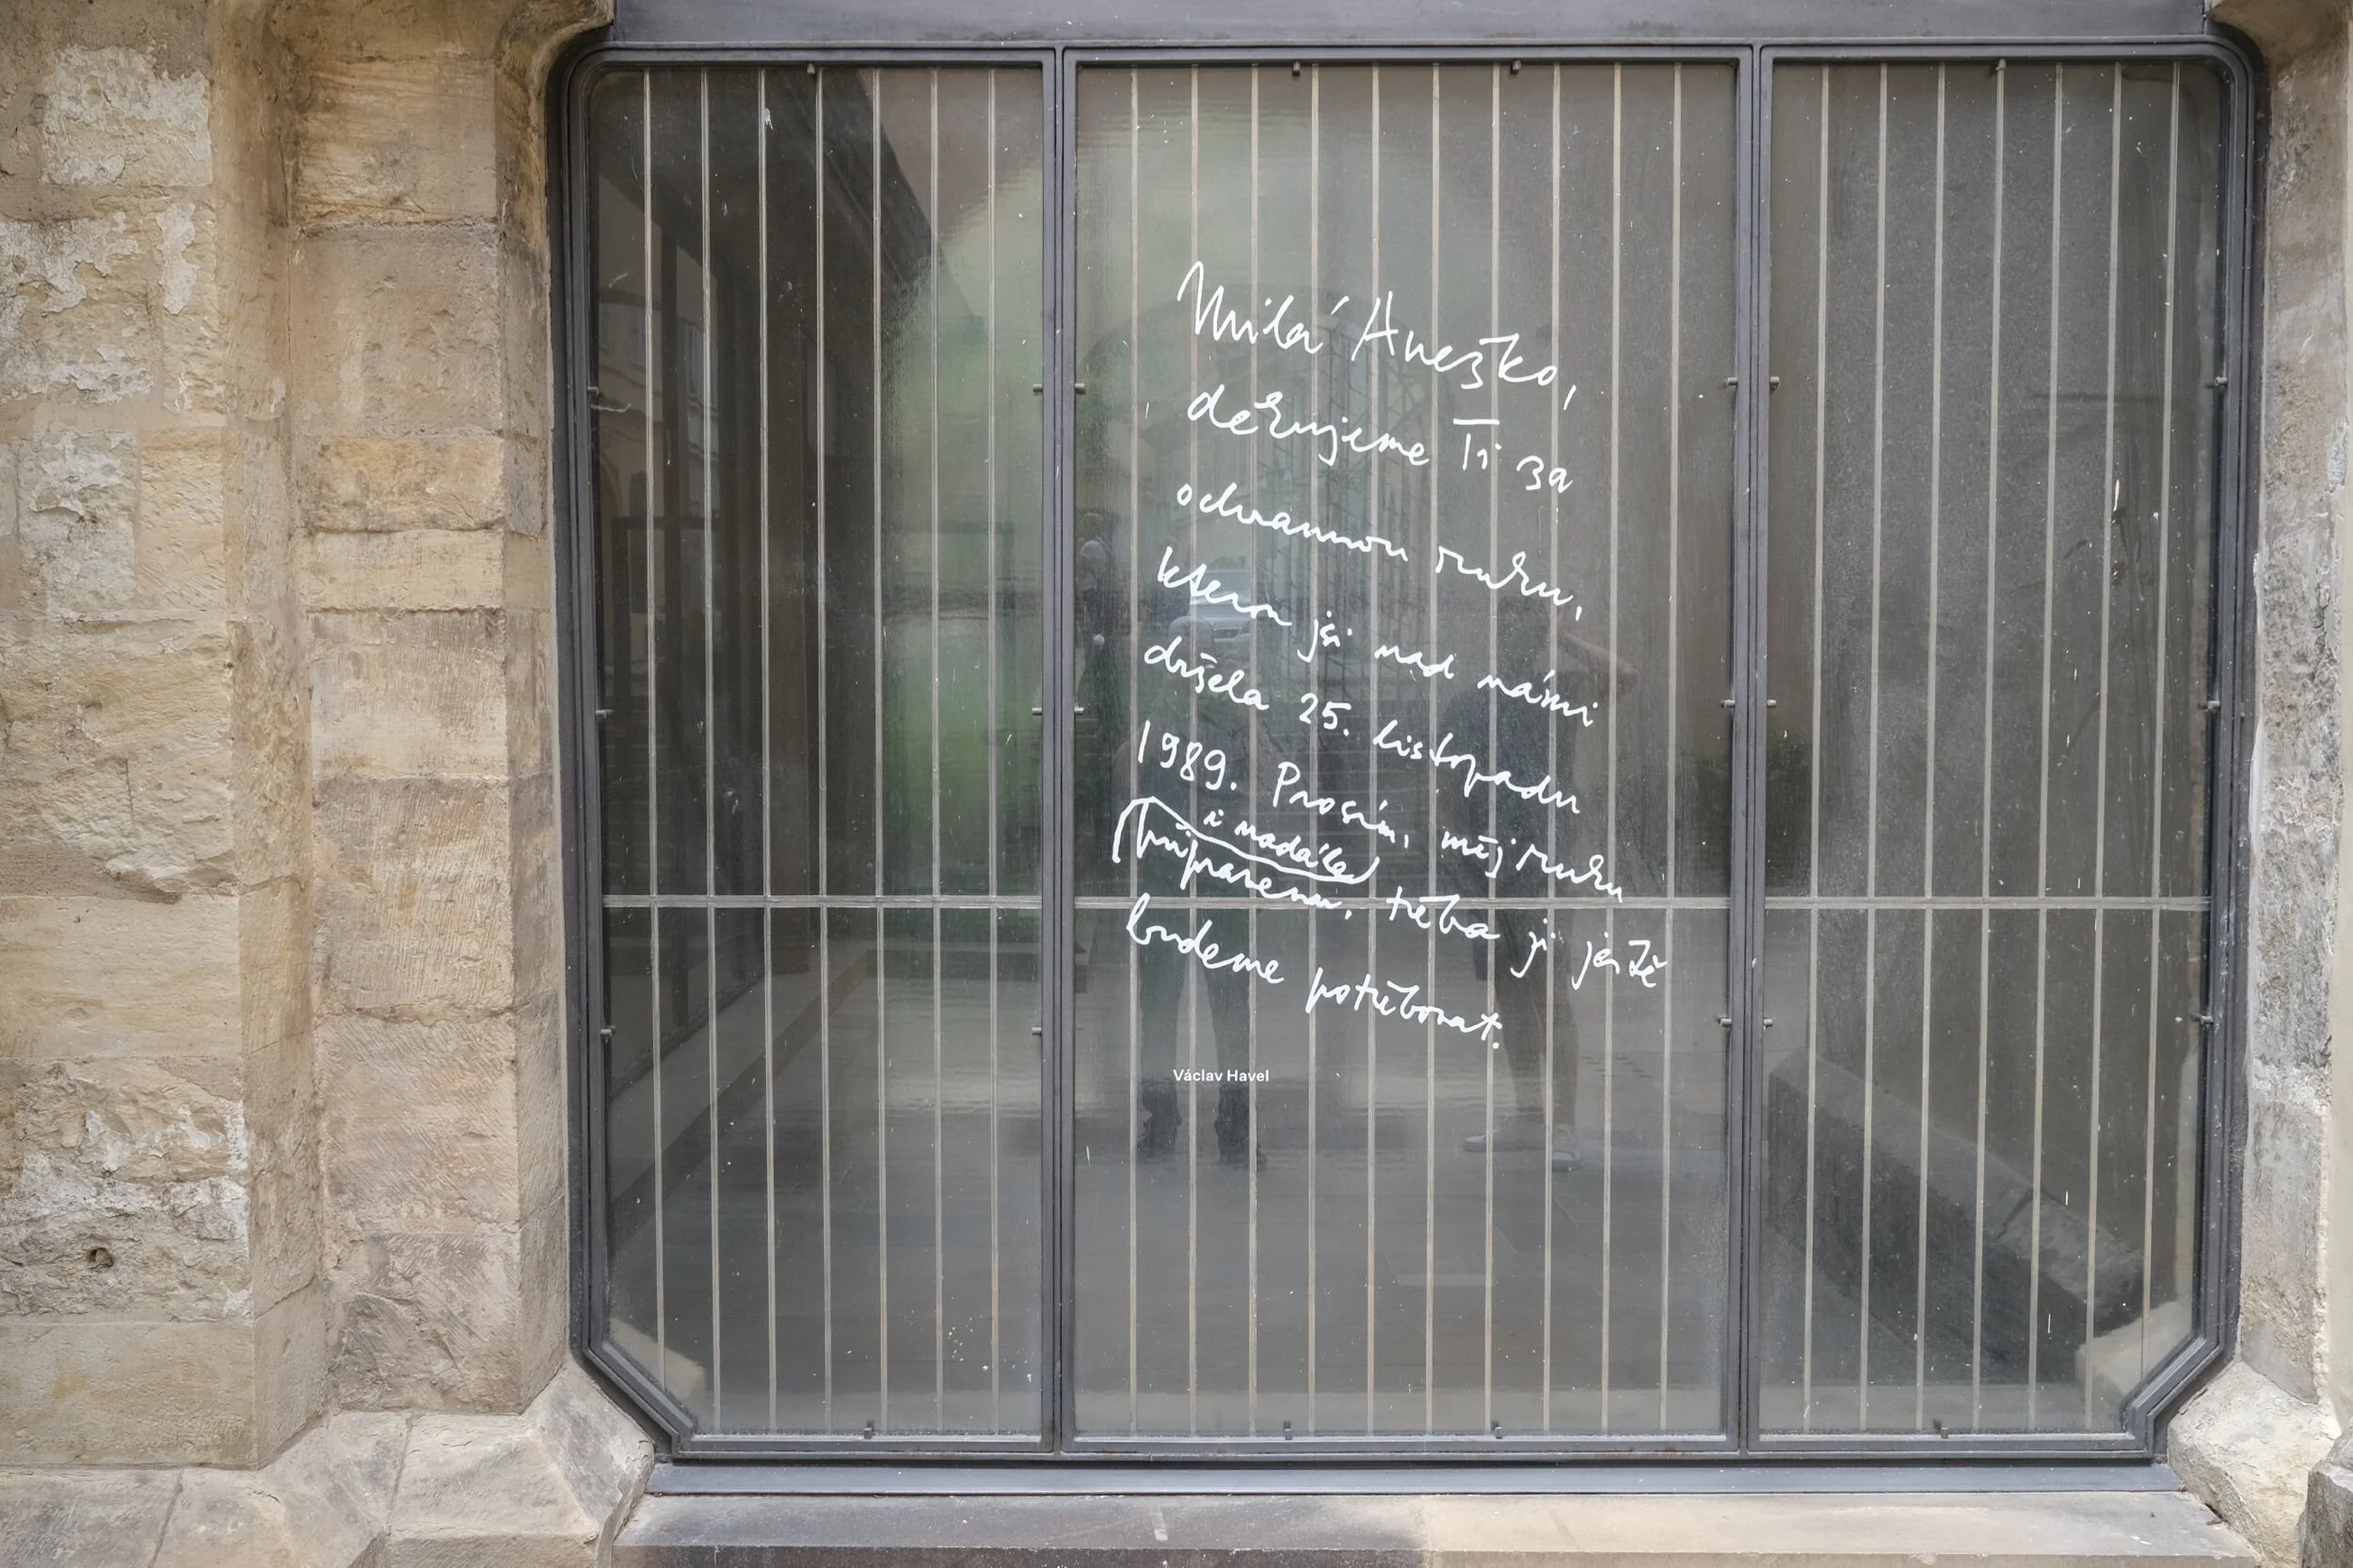 Milá Anežko,
děkujeme Ti za
ochrannou ruku,
kterou jsi nad námi
držela 25. listopadu
1989. Prosím, měj ruku
i nadále
připravenu, třeba ji ještě
budeme potřebovat.
Václav Havel